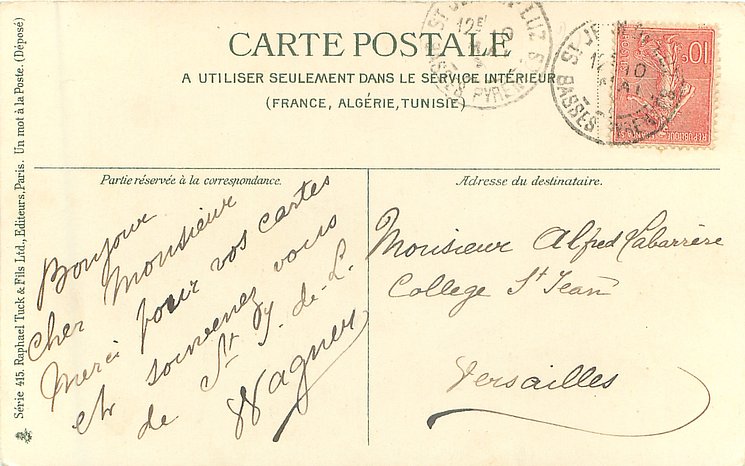 CARTE POSTALE
A UTILISER SEULEMENT DANS LE SERVICE INTÉRIEUR
(FRANCE, ALGÉRIE, TUNISIE)
Partie réservée à la correspondance.
Adresse du destinataire.
Bonjour
Cher Monsieur
Merci pour vos cartes
et souvenez vous
de St J. de L.
Wagner
Monsieur Alfred Labarrère
College St Jean
Versailles
Série 415. Raphael Tuck & Fils Ltd., Editeurs, Paris. Un mot à la Poste. (Déposé)
ST JEAN LUZ
BASSES PYRÉNÉES
10
BASSES
10c
POSTES
REPUBLIQUE FRANÇAISE